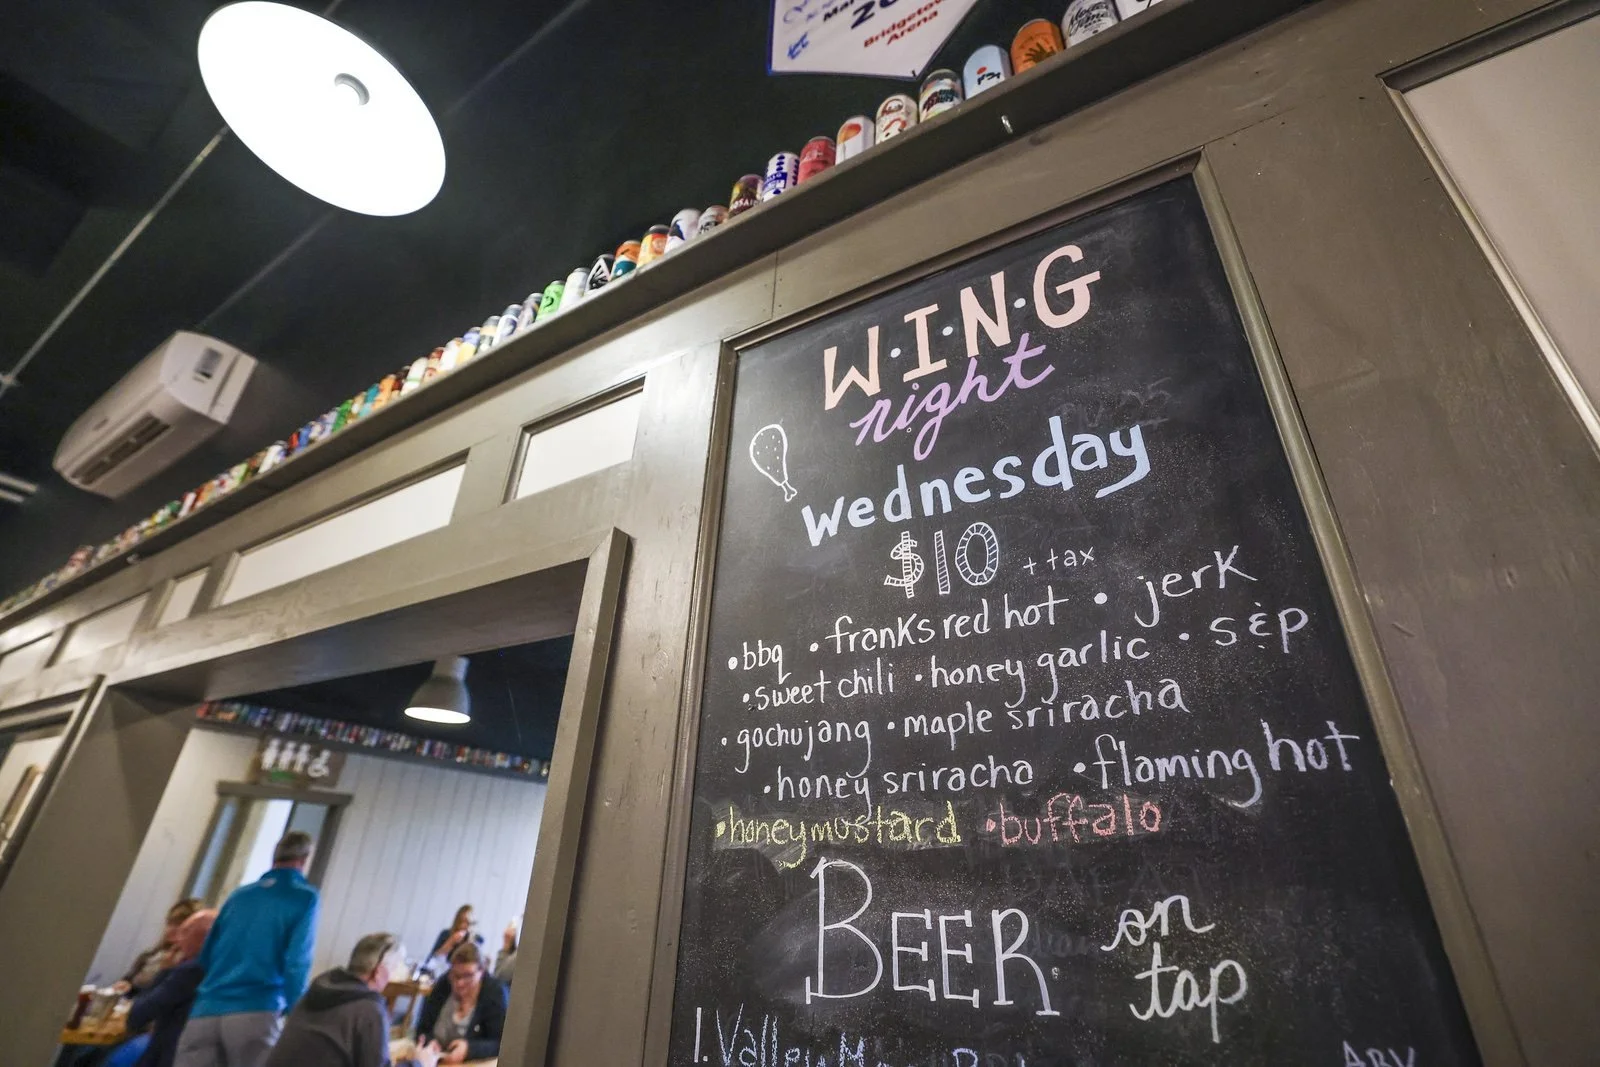 Mar
20
Bridgetown
Arena
MOSAIC
W·I·N·G
night
Wednesday
$10 + tax
• bbq • franks red hot • jerk
• sweet chili • honey garlic • S & P
• gochujang • maple sriracha
• honey sriracha • flaming hot
• honey mustard • buffalo
BEER on
tap
1. Valley
ABV